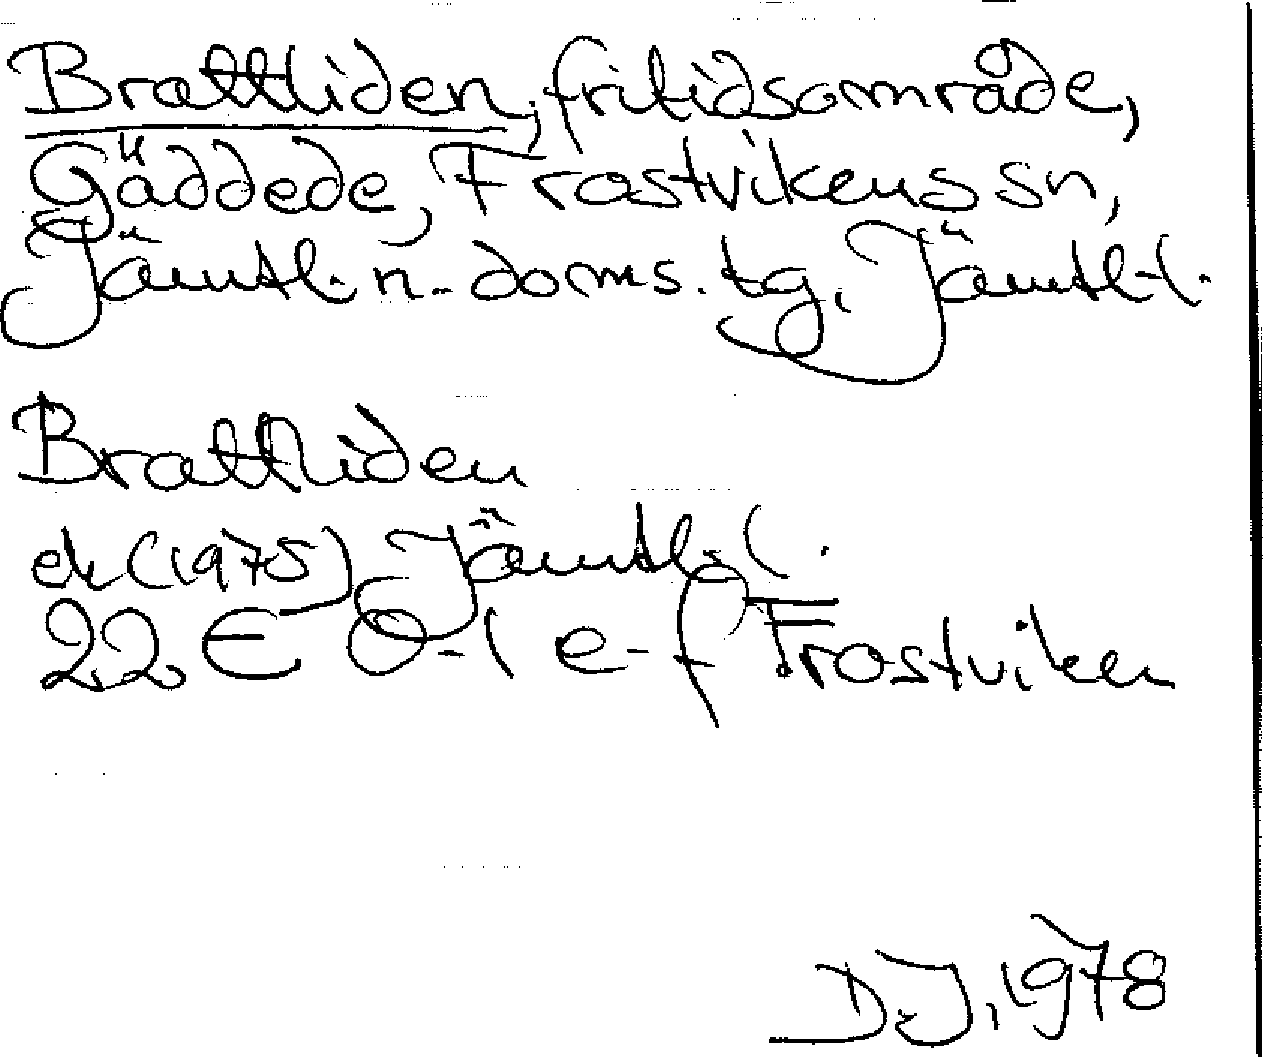 Brattliden, fritidsområde,
Gäddede, Frostvikens sn,
Jämtl. n. doms. tg, Jämtl. l.
Brattliden
ek (1975) Jämtl. l.
22 E 0-1 e-f Frostviken
D.J, 1978